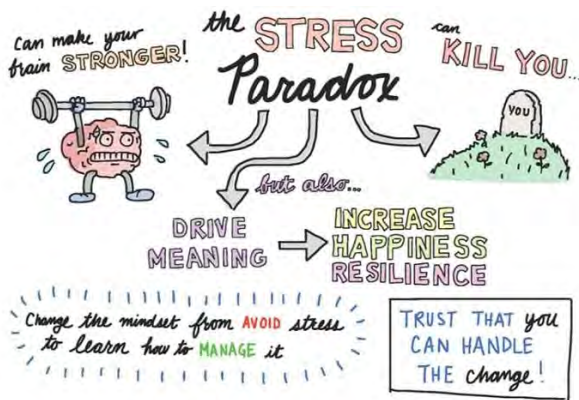 can make your
brain STRONGER!
the STRESS
Paradox
can
KILL YOU...
YOU
but also...
DRIVE
MEANING
INCREASE
HAPPINESS
RESILIENCE
Change the mindset from AVOID stress
to learn how to MANAGE it
TRUST THAT you
CAN HANDLE
THE change!